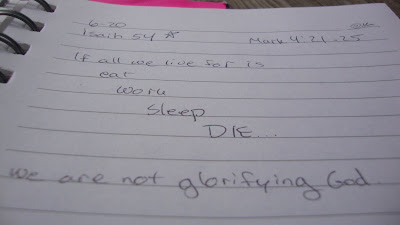 6-20
Isaiah 54 ☆ Mark 4:21-25
If all we live for is
eat
work
sleep
DIE...
we are not glorifying God.